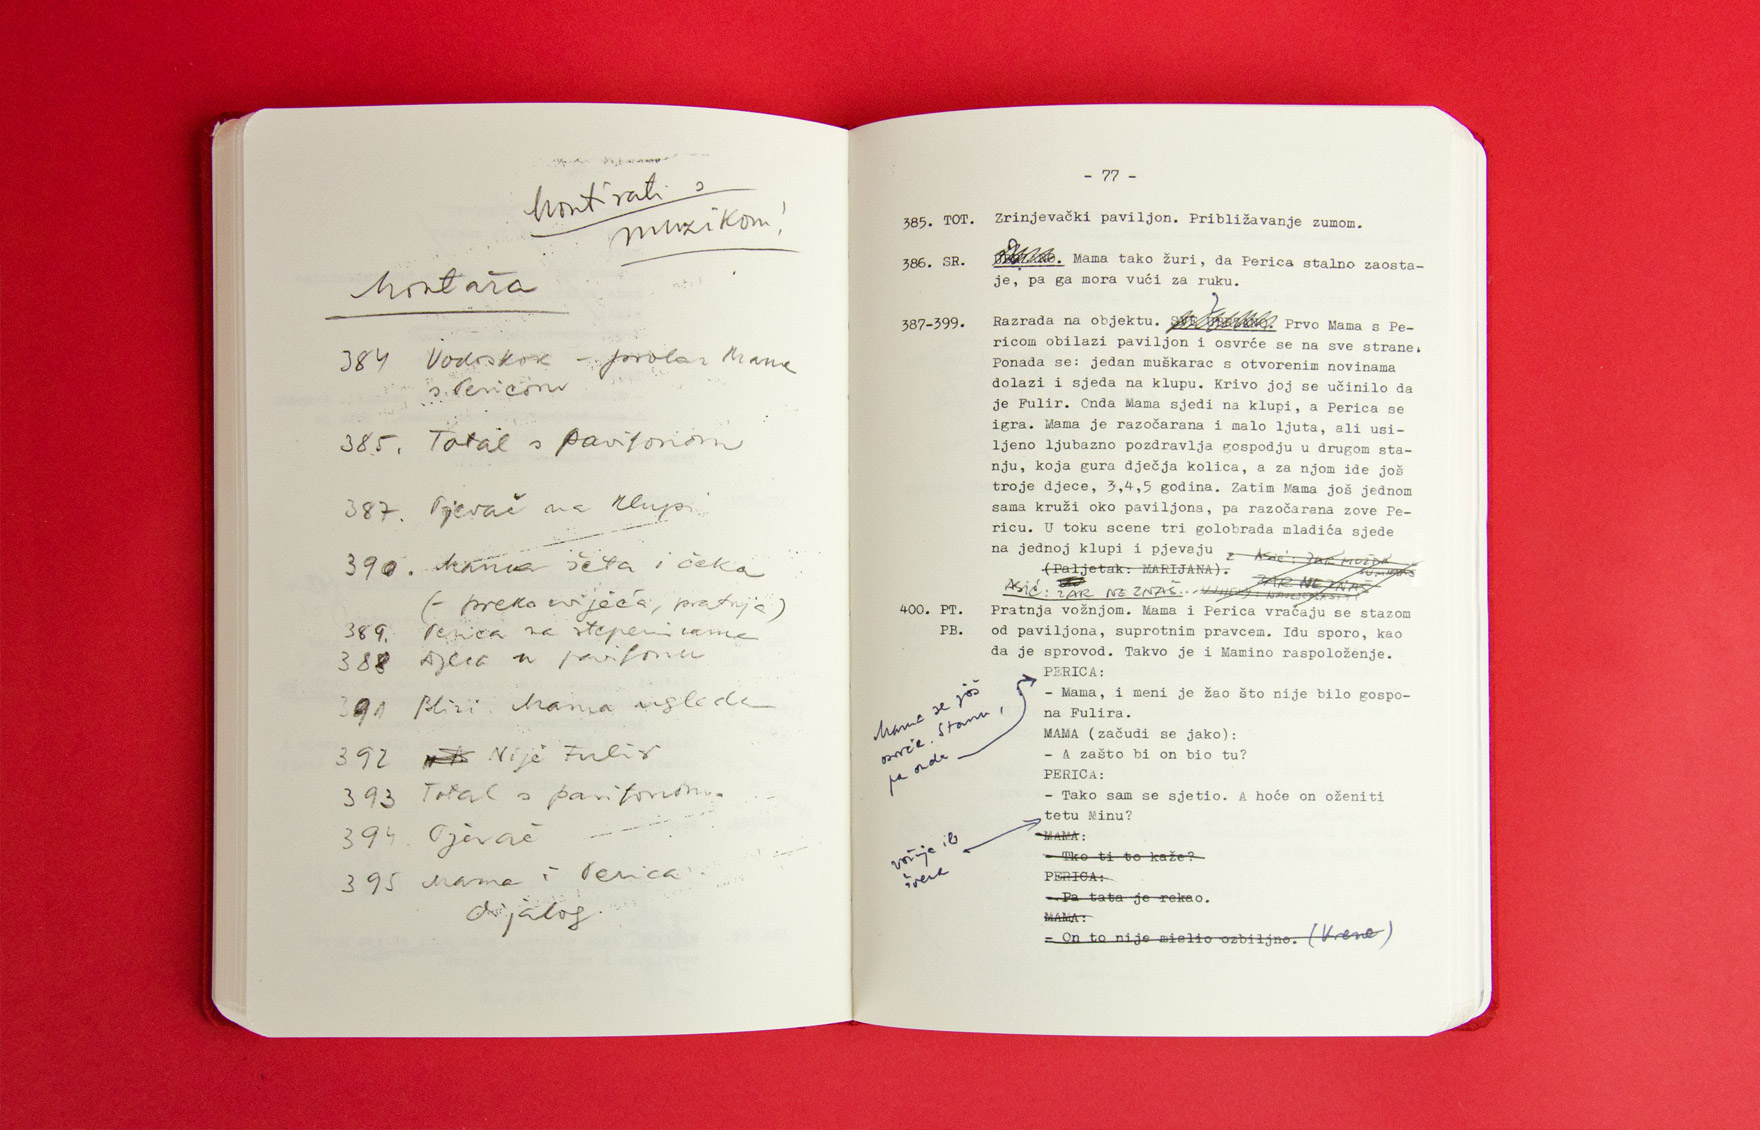 Montirati s
muzikom!
Montaža
384 Vodoskok – prolaz Mame
s Pericom
385. Total s paviljonom
387. Pjevač na klupi
390. Mama šeta i čeka
(– preko vijeća, pratnja)
389. Perica na stepenicama
388 Djeca u paviljonu
391 Bliži. Mama ugleda
392 Nije Fulir
393 Total s paviljonom.
394. Pjevač
395 Mama i Perica
dijalog.
- 77 -
385. TOT. Zrinjevački paviljon. Približavanje zumom.
386. SR. Mama tako žuri, da Perica stalno zaosta-
je, pa ga mora vući za ruku.
387-399. Razrada na objektu. Prvo Mama s Pe-
ricom obilazi paviljon i osvrće se na sve strane.
Ponada se: jedan muškarac s otvorenim novinama
dolazi i sjeda na klupu. Krivo joj se učinilo da
je Fulir. Onda Mama sjedi na klupi, a Perica se
igra. Mama je razočarana i malo ljuta, ali usi-
ljeno ljubazno pozdravlja gospodju u drugom sta-
nju, koja gura dječja kolica, a za njom ide još
troje djece, 3,4,5 godina. Zatim Mama još jednom
sama kruži oko paviljona, pa razočarana zove Pe-
ricu. U toku scene tri golobrada mladića sjede
na jednoj klupi i pjevaju
(Paljetak: MARIJANA). ZAR NE ZNAŠ
Asić: ZAR NE ZNAŠ..
400. PT. Pratnja vožnjom. Mama i Perica vraćaju se stazom
PB. od paviljona, suprotnim pravcem. Idu sporo, kao
da je sprovod. Takvo je i Mamino raspoloženje.
PERICA:
- Mama, i meni je žao što nije bilo gospo-
na Fulira.
MAMA (začudi se jako):
- A zašto bi on bio tu?
PERICA:
- Tako sam se sjetio. A hoće on oženiti
tetu Minu?
MAMA:
- Tko ti to kaže?
PERICA:
- Pa tata je rekao.
MAMA:
- On to nije mislio ozbiljno.
Mama se još
osvrće. Stanu,
pa onda